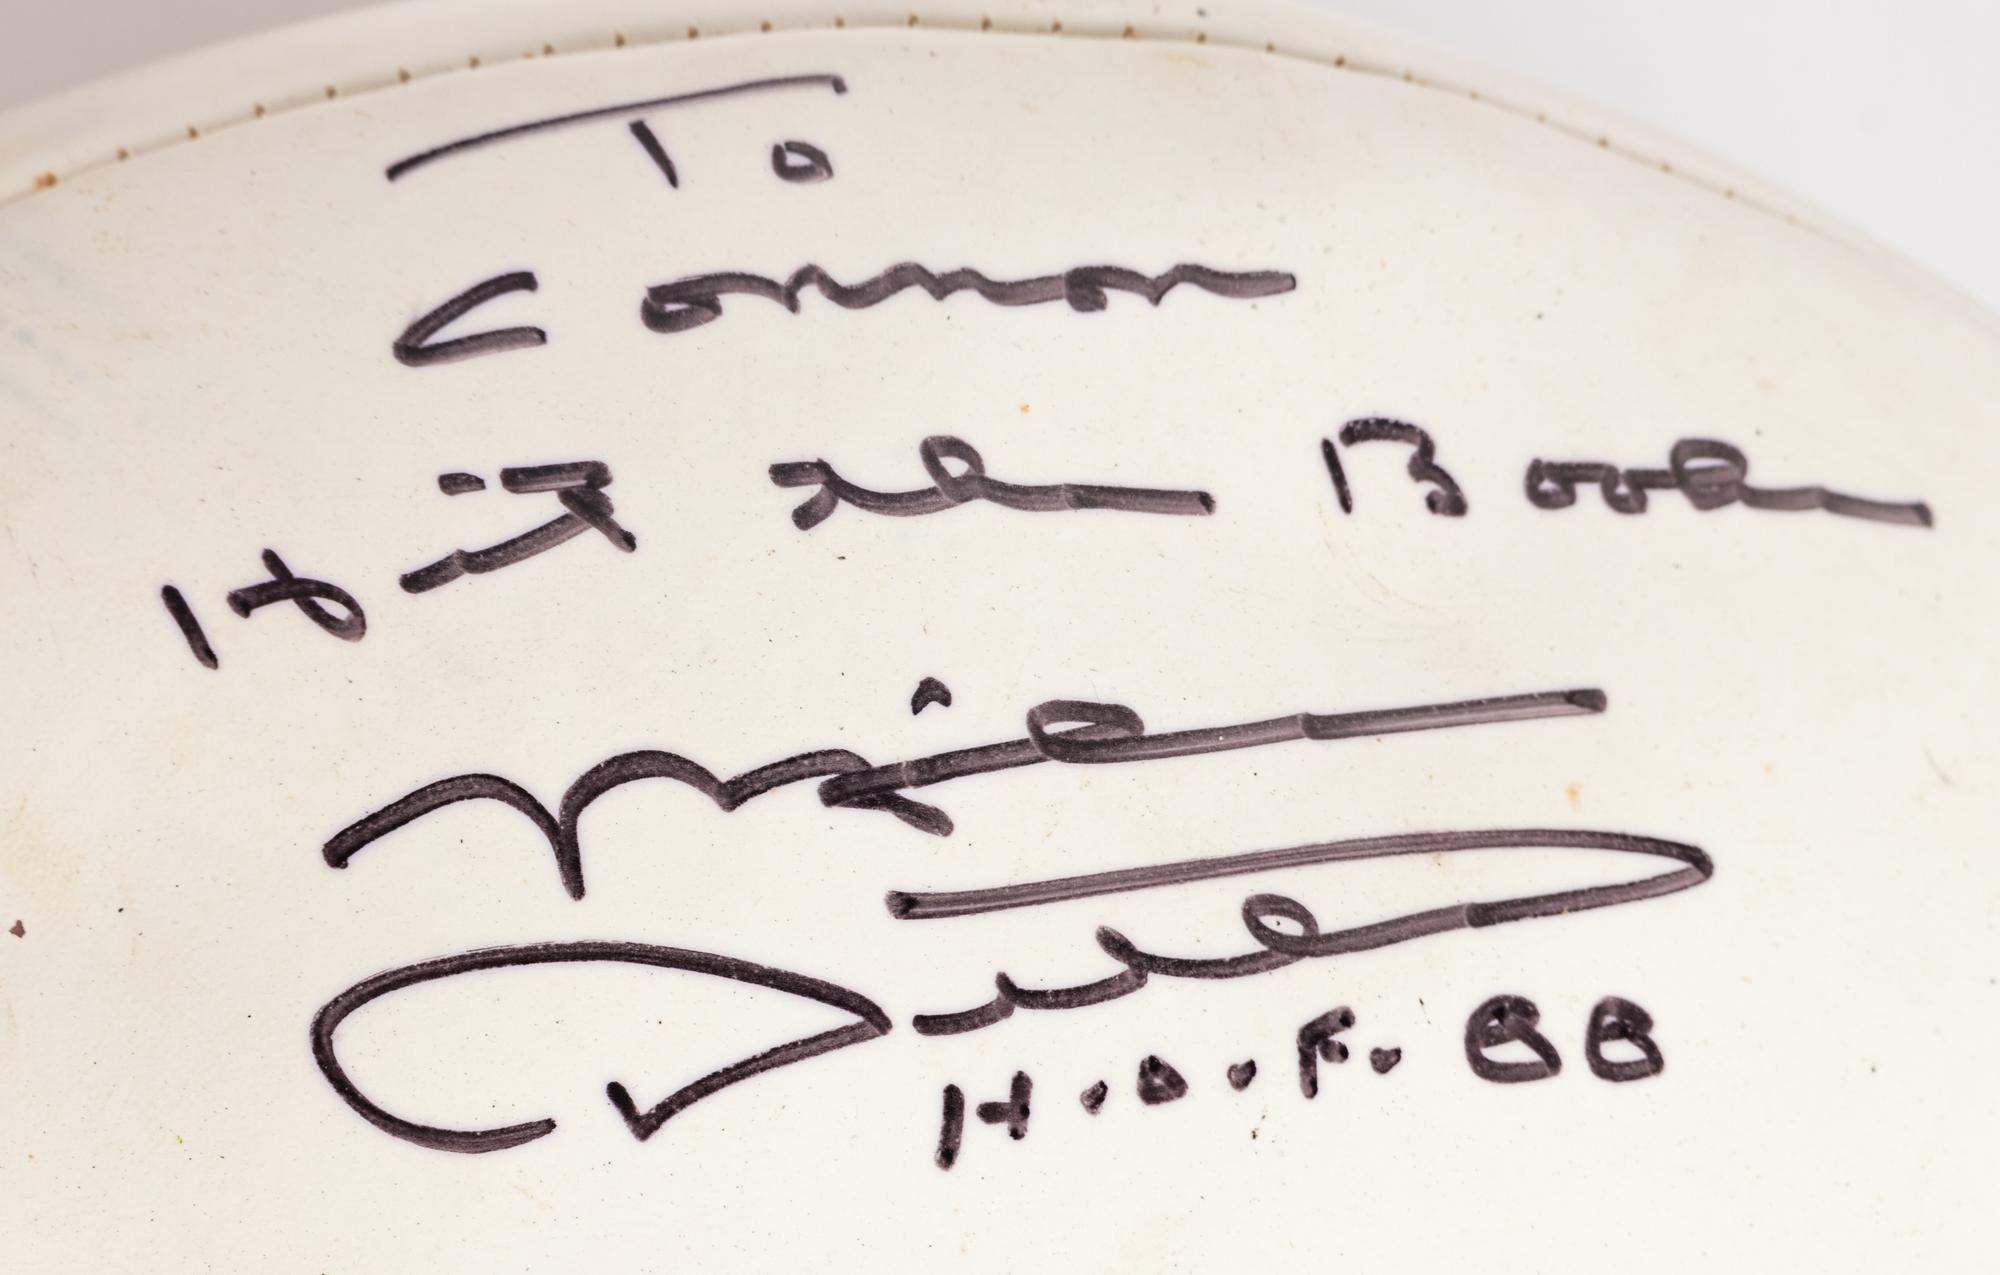 To
Connor
Hit the Books
Mike
Ditka
H.O.F. 88